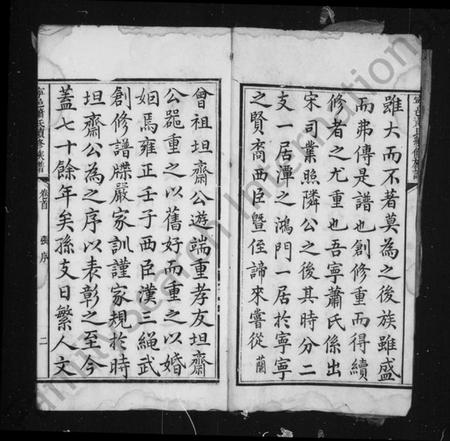 雖大而不著莫為之後族雖盛
而弗傳是譜也創修重而得續
修者之尤重也吾寧蕭氏係出
宋司業照隣公之後其時分二
支一居潭之鴻門一居於寧寧
之賢裔西臣暨侄諦來嘗從蘭
寧邑蕭氏續修族譜
卷首
張序
二
曾祖坦齋公遊端重孝友坦齋
公器重之以舊好而重之以婚
姻焉雍正壬子西臣漢三繩武
創修譜牒嚴家訓謹家規於時
坦齋公為之序以表彰之至今
蓋七十餘年矣孫支日繁人文
FamilySearch International